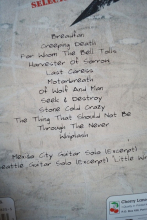 SELEC
Breadfan
Creeping Death
For Whom The Bell Tolls
Harvester Of Sorrow
Last Caress
Motorbreath
Of Wolf And Man
Seek & Destroy
Stone Cold Crazy
The Thing That Should Not Be
Through The Never
Whiplash
Mexico City Guitar Solo (Excerpt)
eattle Guitar Solo (Excerpt) 'Little W
Cherry Love